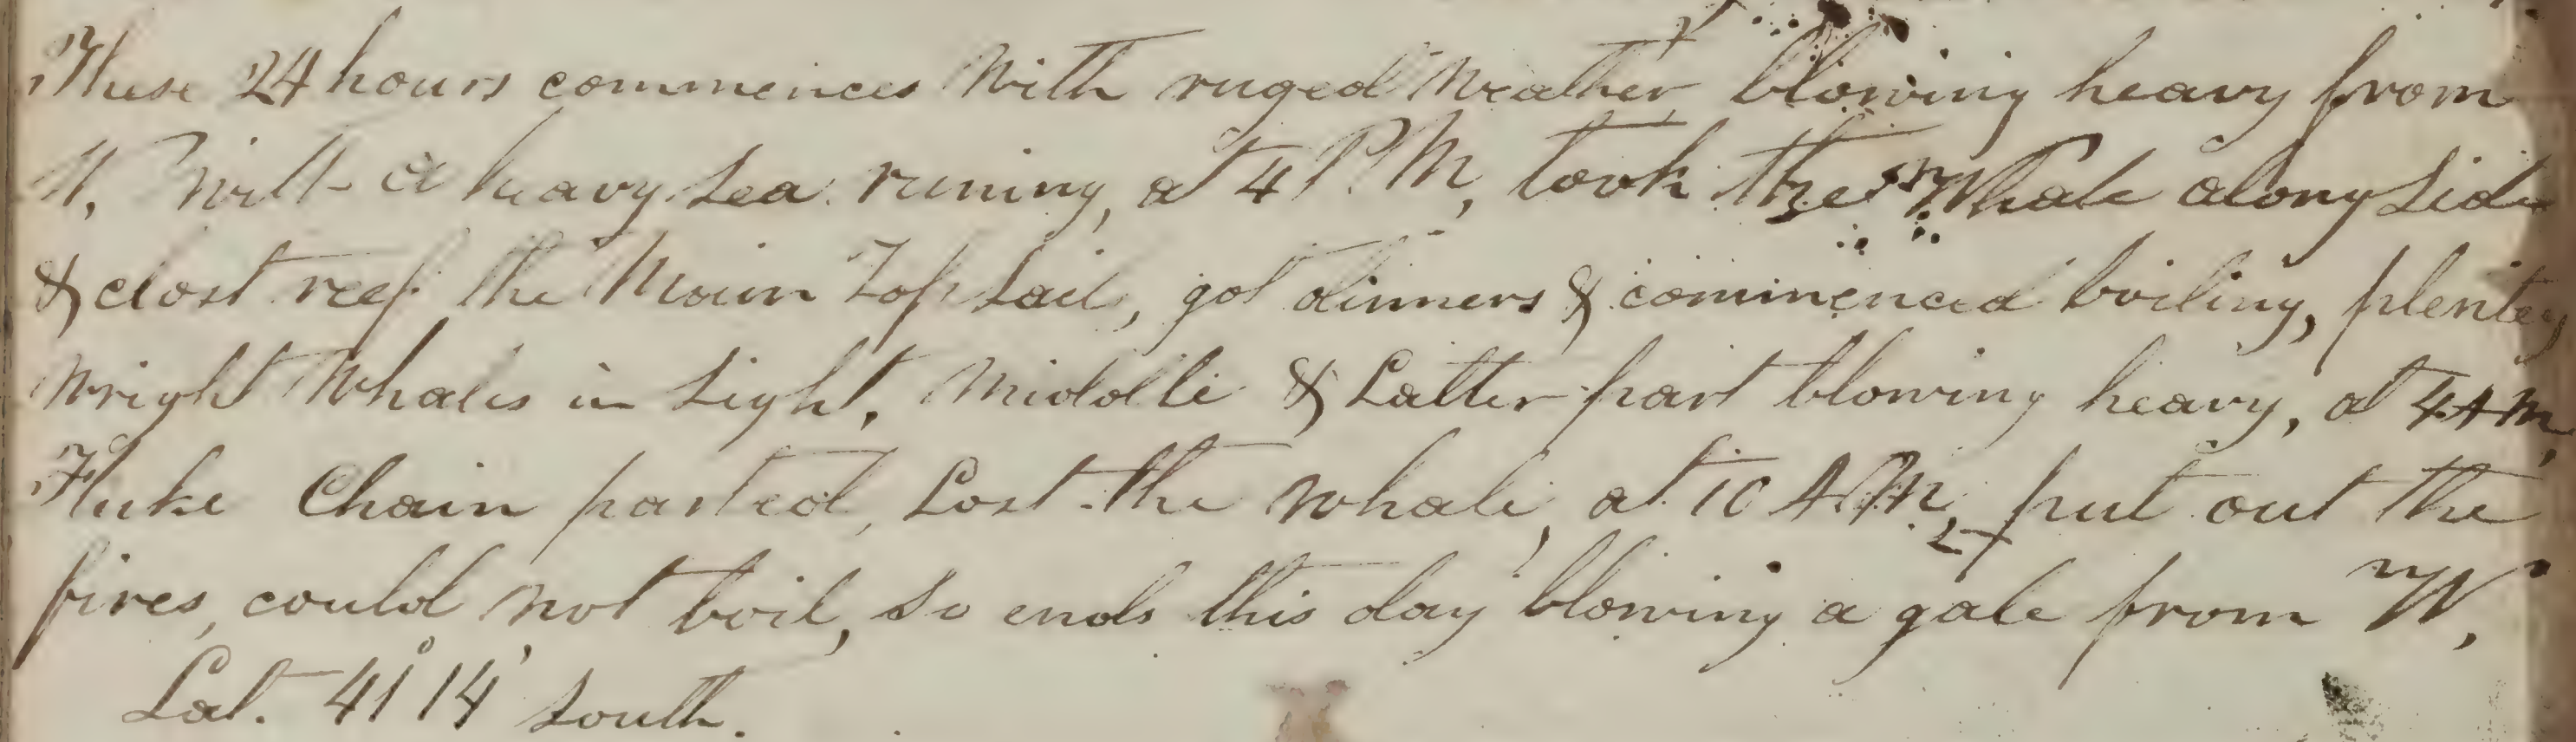 These 24 hours commences with ruged weather, blowing heavy from
N, with a heavy sea runing, at 4 P.M, took the whale along side
& clost reef the Main Top sail, got dinners & commenced boiling, plentey
wright whales in sight, middle & Latter part blowing heavy, at 4 A m,
Fluke Chain parted, Lost the whale, at 10 A M, put out the
fires, could not boil, so ends this day blowing a gale from W,
Lat. 41° 14' South.